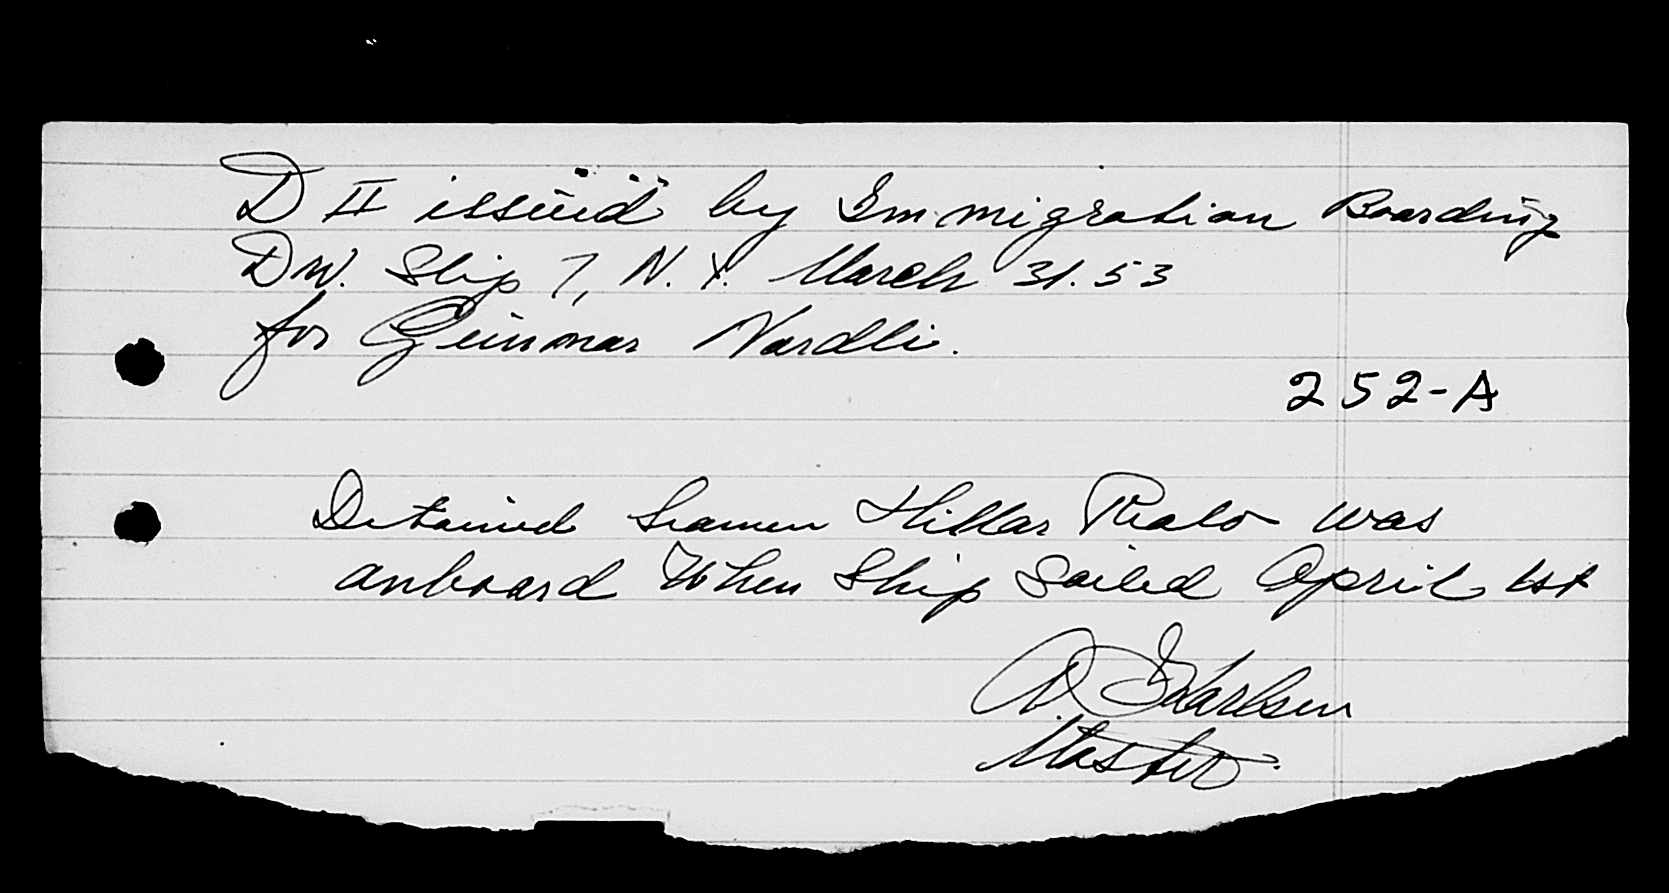 D II issued by Immigration Boarding
Div. Slip 7, N.Y. March 31. 53
for Gunnar Nardli.
252-A
Detained Seamen Hillar Pealo was
onboard When Ship Sailed April 1st
Karlsen
Master.